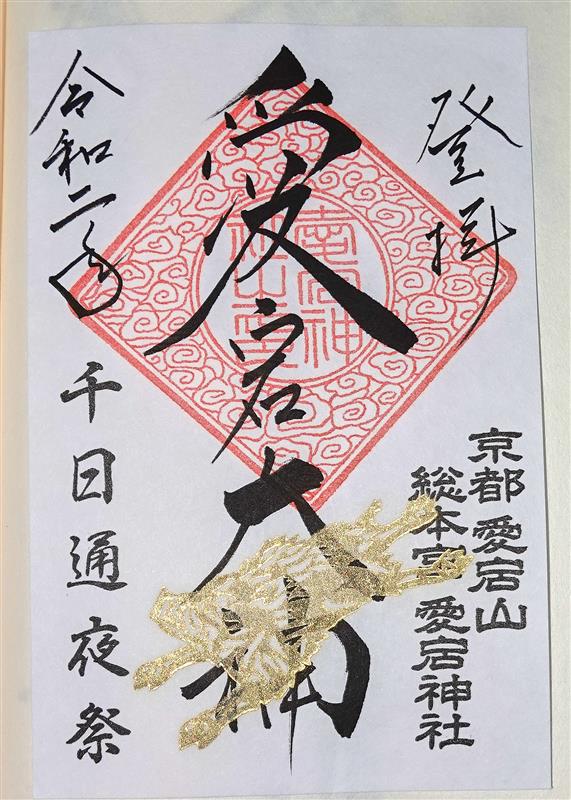 登拝
京都 愛宕山
総本宮 愛宕神社
愛宕大神
令和二年
千日通夜祭